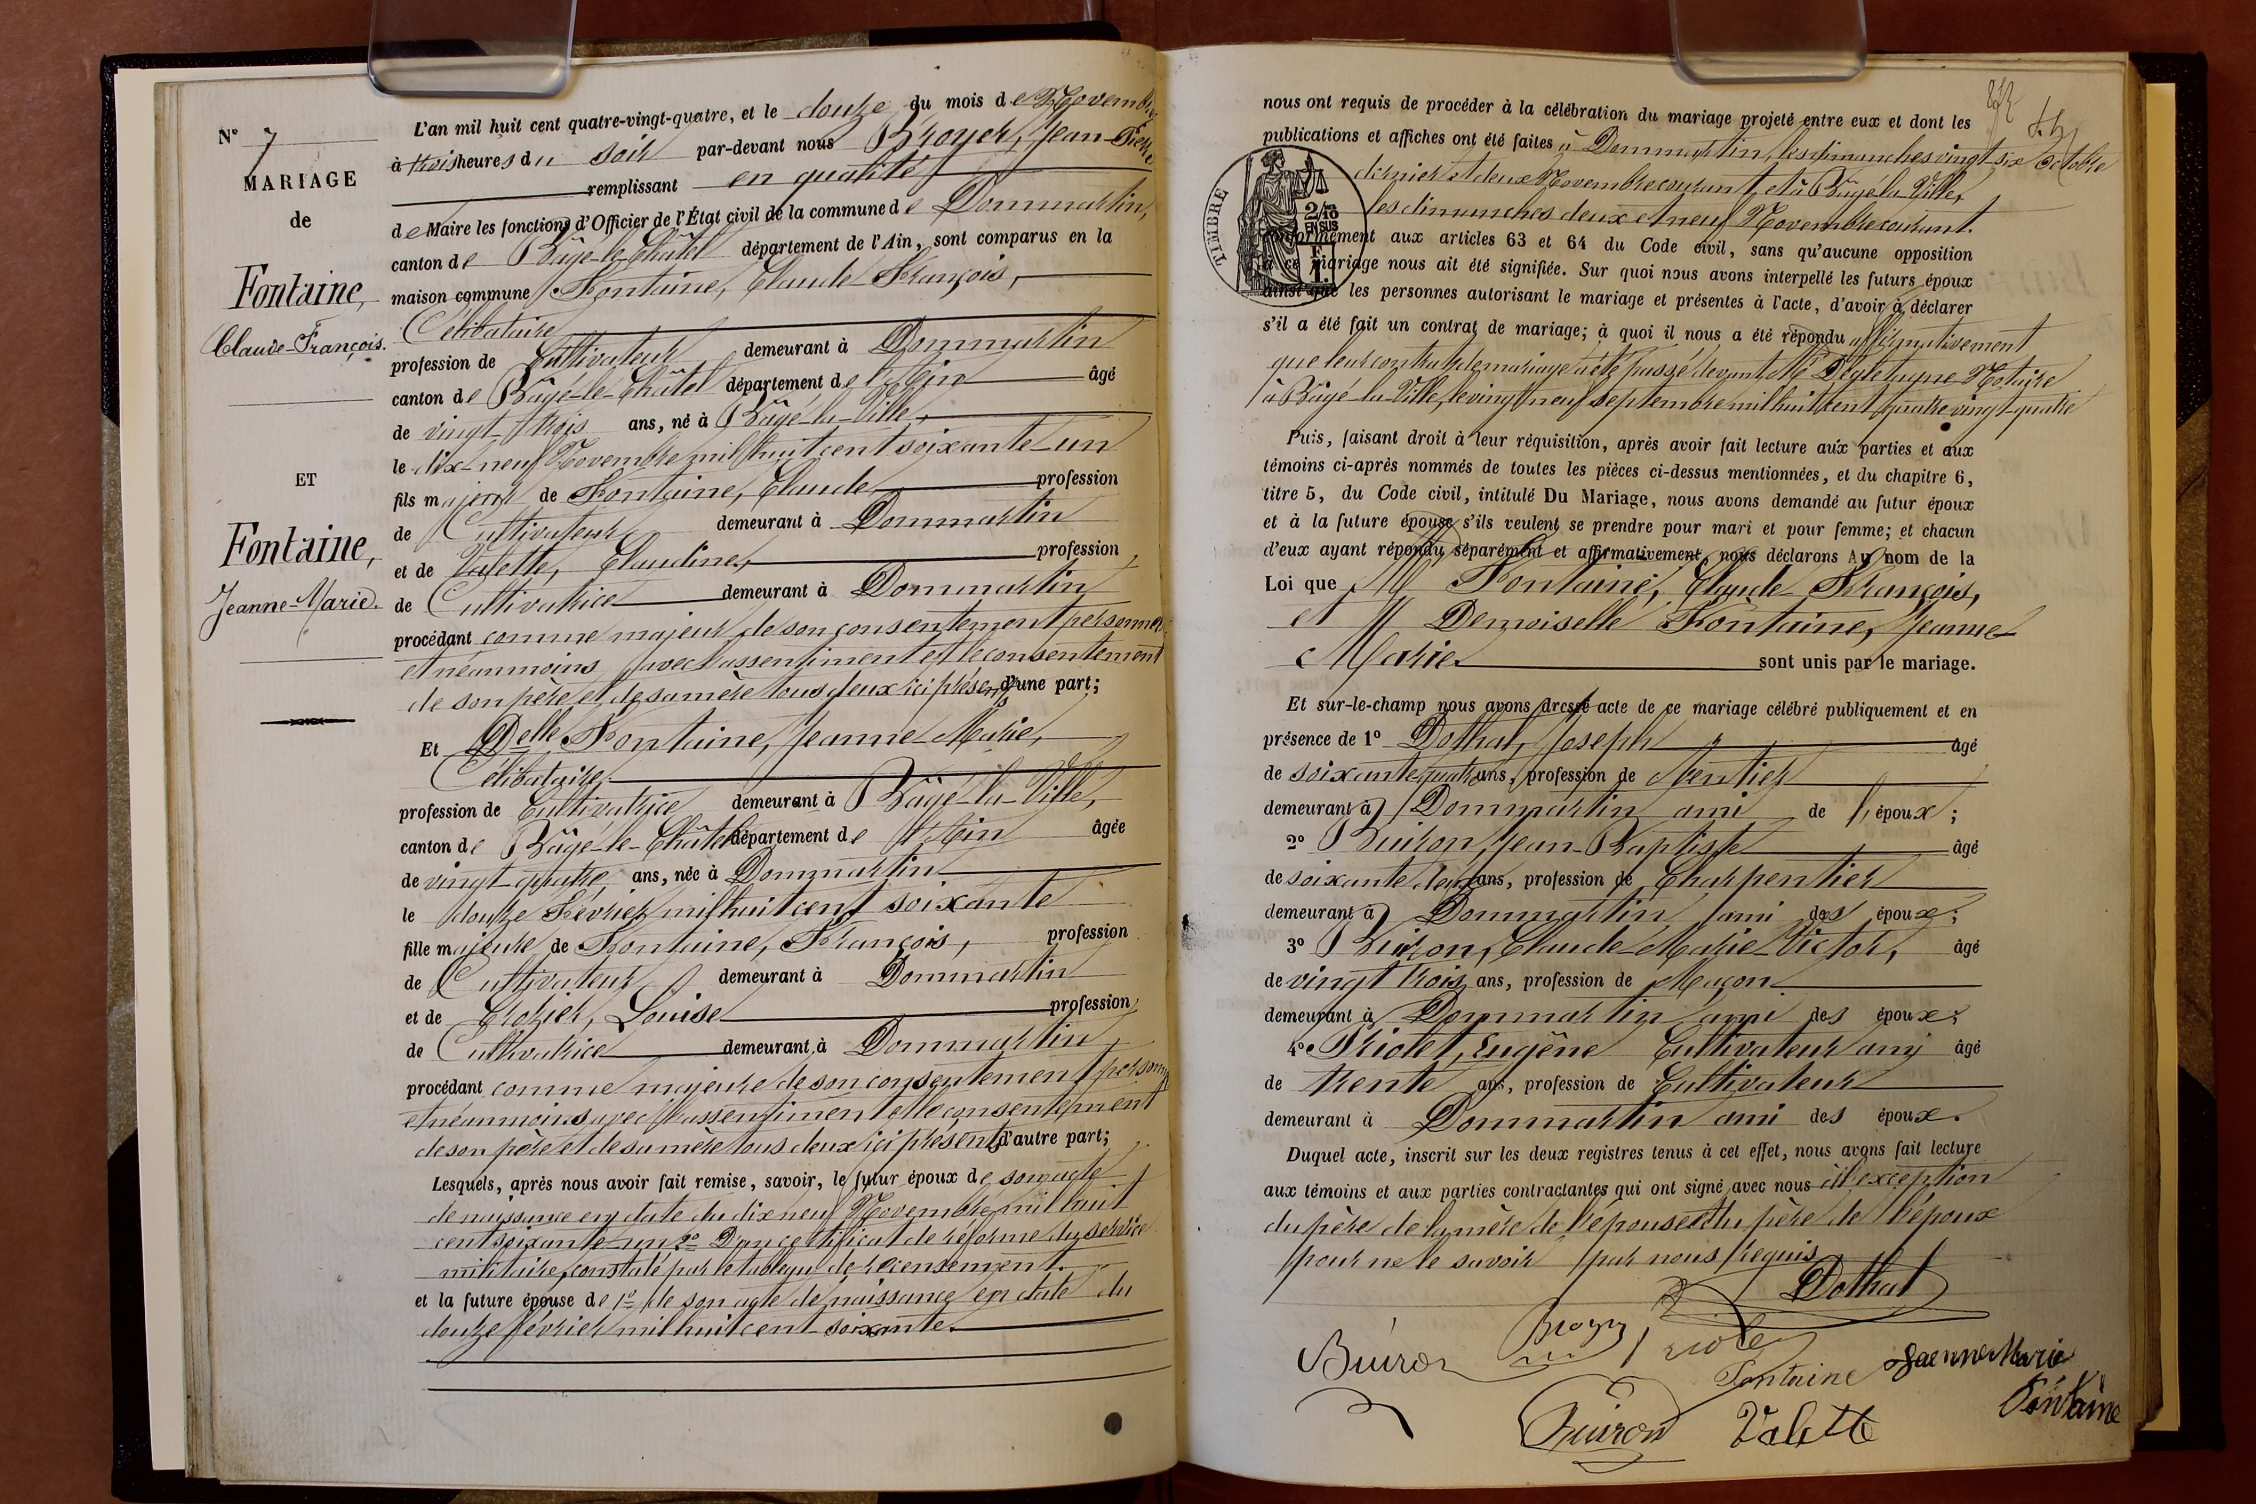 N° 7
MARIAGE
de
Fontaine,
Claude-François.
ET
Fontaine,
Jeanne-Marie.
L'an mil huit cent quatre-vingt-quatre, et le douze du mois de Novembre
à trois heures du soir par-devant nous Broyer, Jean-Pierre
remplissant en qualité
de Maire les fonctions d'Officier de l'État civil de la commune de Dommartin,
canton de Bâgé-le-Châtel département de l'Ain, sont comparus en la
maison commune Fontaine, Claude François,
Célibataire
profession de Cultivateur demeurant à Dommartin
canton de Bâgé-le-Châtel département de l'Ain âgé
de vingt-trois ans, né à Bâgé-la-Ville,
le dix-neuf Novembre mil huit cent soixante-un
fils majeur de Fontaine, Claude profession
de Cultivateur demeurant à Dommartin
et de Valette, Claudine, profession
de Cultivatrice demeurant à Dommartin
procédant comme majeur de son consentement personnel
et néanmoins avec l'assentiment et le consentement
de son père et de sa mère tous deux ici présents d'une part;
Et Delle Fontaine, Jeanne-Marie,
Célibataire
profession de Cultivatrice demeurant à Bâgé-la-Ville,
canton de Bâgé-le-Châtel département de l'Ain âgée
de vingt-quatre ans, née à Dommartin
le douze Février mil huit cent soixante
fille majeure de Fontaine, François, profession
de Cultivateur demeurant à Dommartin
et de Crozier, Louise profession
de Cultivatrice demeurant à Dommartin
procédant comme majeure de son consentement personnel
et néanmoins avec l'assentiment et le consentement
de son père et de sa mère tous deux ici présents d'autre part;
Lesquels, après nous avoir fait remise, savoir, le futur époux de son acte
de naissance en date du dix neuf Novembre mil huit
cent soixante-un 2° D'un certificat de réforme du service
militaire, constaté par le tableau de recensement.
et la future épouse de 1° de son acte de naissance en date du
douze février mil huit cent soixante.
nous ont requis de procéder à la célébration du mariage projeté entre eux et dont les
publications et affiches ont été faites à Dommartin, les dimanches vingt-six Octobre
dernier et deux Novembre courant, et à Bâgé-la-Ville,
les dimanches deux et neuf Novembre courant.
TIMBRE
2/10 EN SUS
conformément aux articles 63 et 64 du Code civil, sans qu'aucune opposition
à ce mariage nous ait été signifiée. Sur quoi nous avons interpellé les futurs époux
ainsi que les personnes autorisant le mariage et présentes à l'acte, d'avoir à déclarer
s'il a été fait un contrat de mariage; à quoi il nous a été répondu affirmativement
que leur contrat de mariage a été passé devant Me Notaire
à Bâgé-la-Ville, le vingt neuf septembre mil huit cent quatre vingt-quatre
Puis, faisant droit à leur réquisition, après avoir fait lecture aux parties et aux
témoins ci-après nommés de toutes les pièces ci-dessus mentionnées, et du chapitre 6,
titre 5, du Code civil, intitulé Du Mariage, nous avons demandé au futur époux
et à la future épouse s'ils veulent se prendre pour mari et pour femme; et chacun
d'eux ayant répondu séparément et affirmativement, nous déclarons Au nom de la
Loi que M Fontaine, Claude François,
et M Demoiselle Fontaine, Jeanne
Marie sont unis par le mariage.
Et sur-le-champ nous avons dressé acte de ce mariage célébré publiquement et en
présence de 1° Dothal, Joseph âgé
de soixante quatre ans, profession de Rentier
demeurant à Dommartin ami de l'époux;
2° Buiron, Jean-Baptiste âgé
de soixante deux ans, profession de Charpentier
demeurant à Dommartin ami des époux;
3° Buiron, Claude-Marie-Victor, âgé
de vingt trois ans, profession de Maçon
demeurant à Dommartin ami des époux;
4° Priolet, Eugêne Cultivateur ami âgé
de trente ans, profession de Cultivateur
demeurant à Dommartin ami des époux.
Duquel acte, inscrit sur les deux registres tenus à cet effet, nous avons fait lecture
aux témoins et aux parties contractantes qui ont signé avec nous à l'exception
du père de la mère de l'épouse et du père de l'époux
pour ne le savoir par nous requis
Dothal
Buiron
Broyer
Fontaine
Jaenne Marie
Fontaine
Buiron
Valette